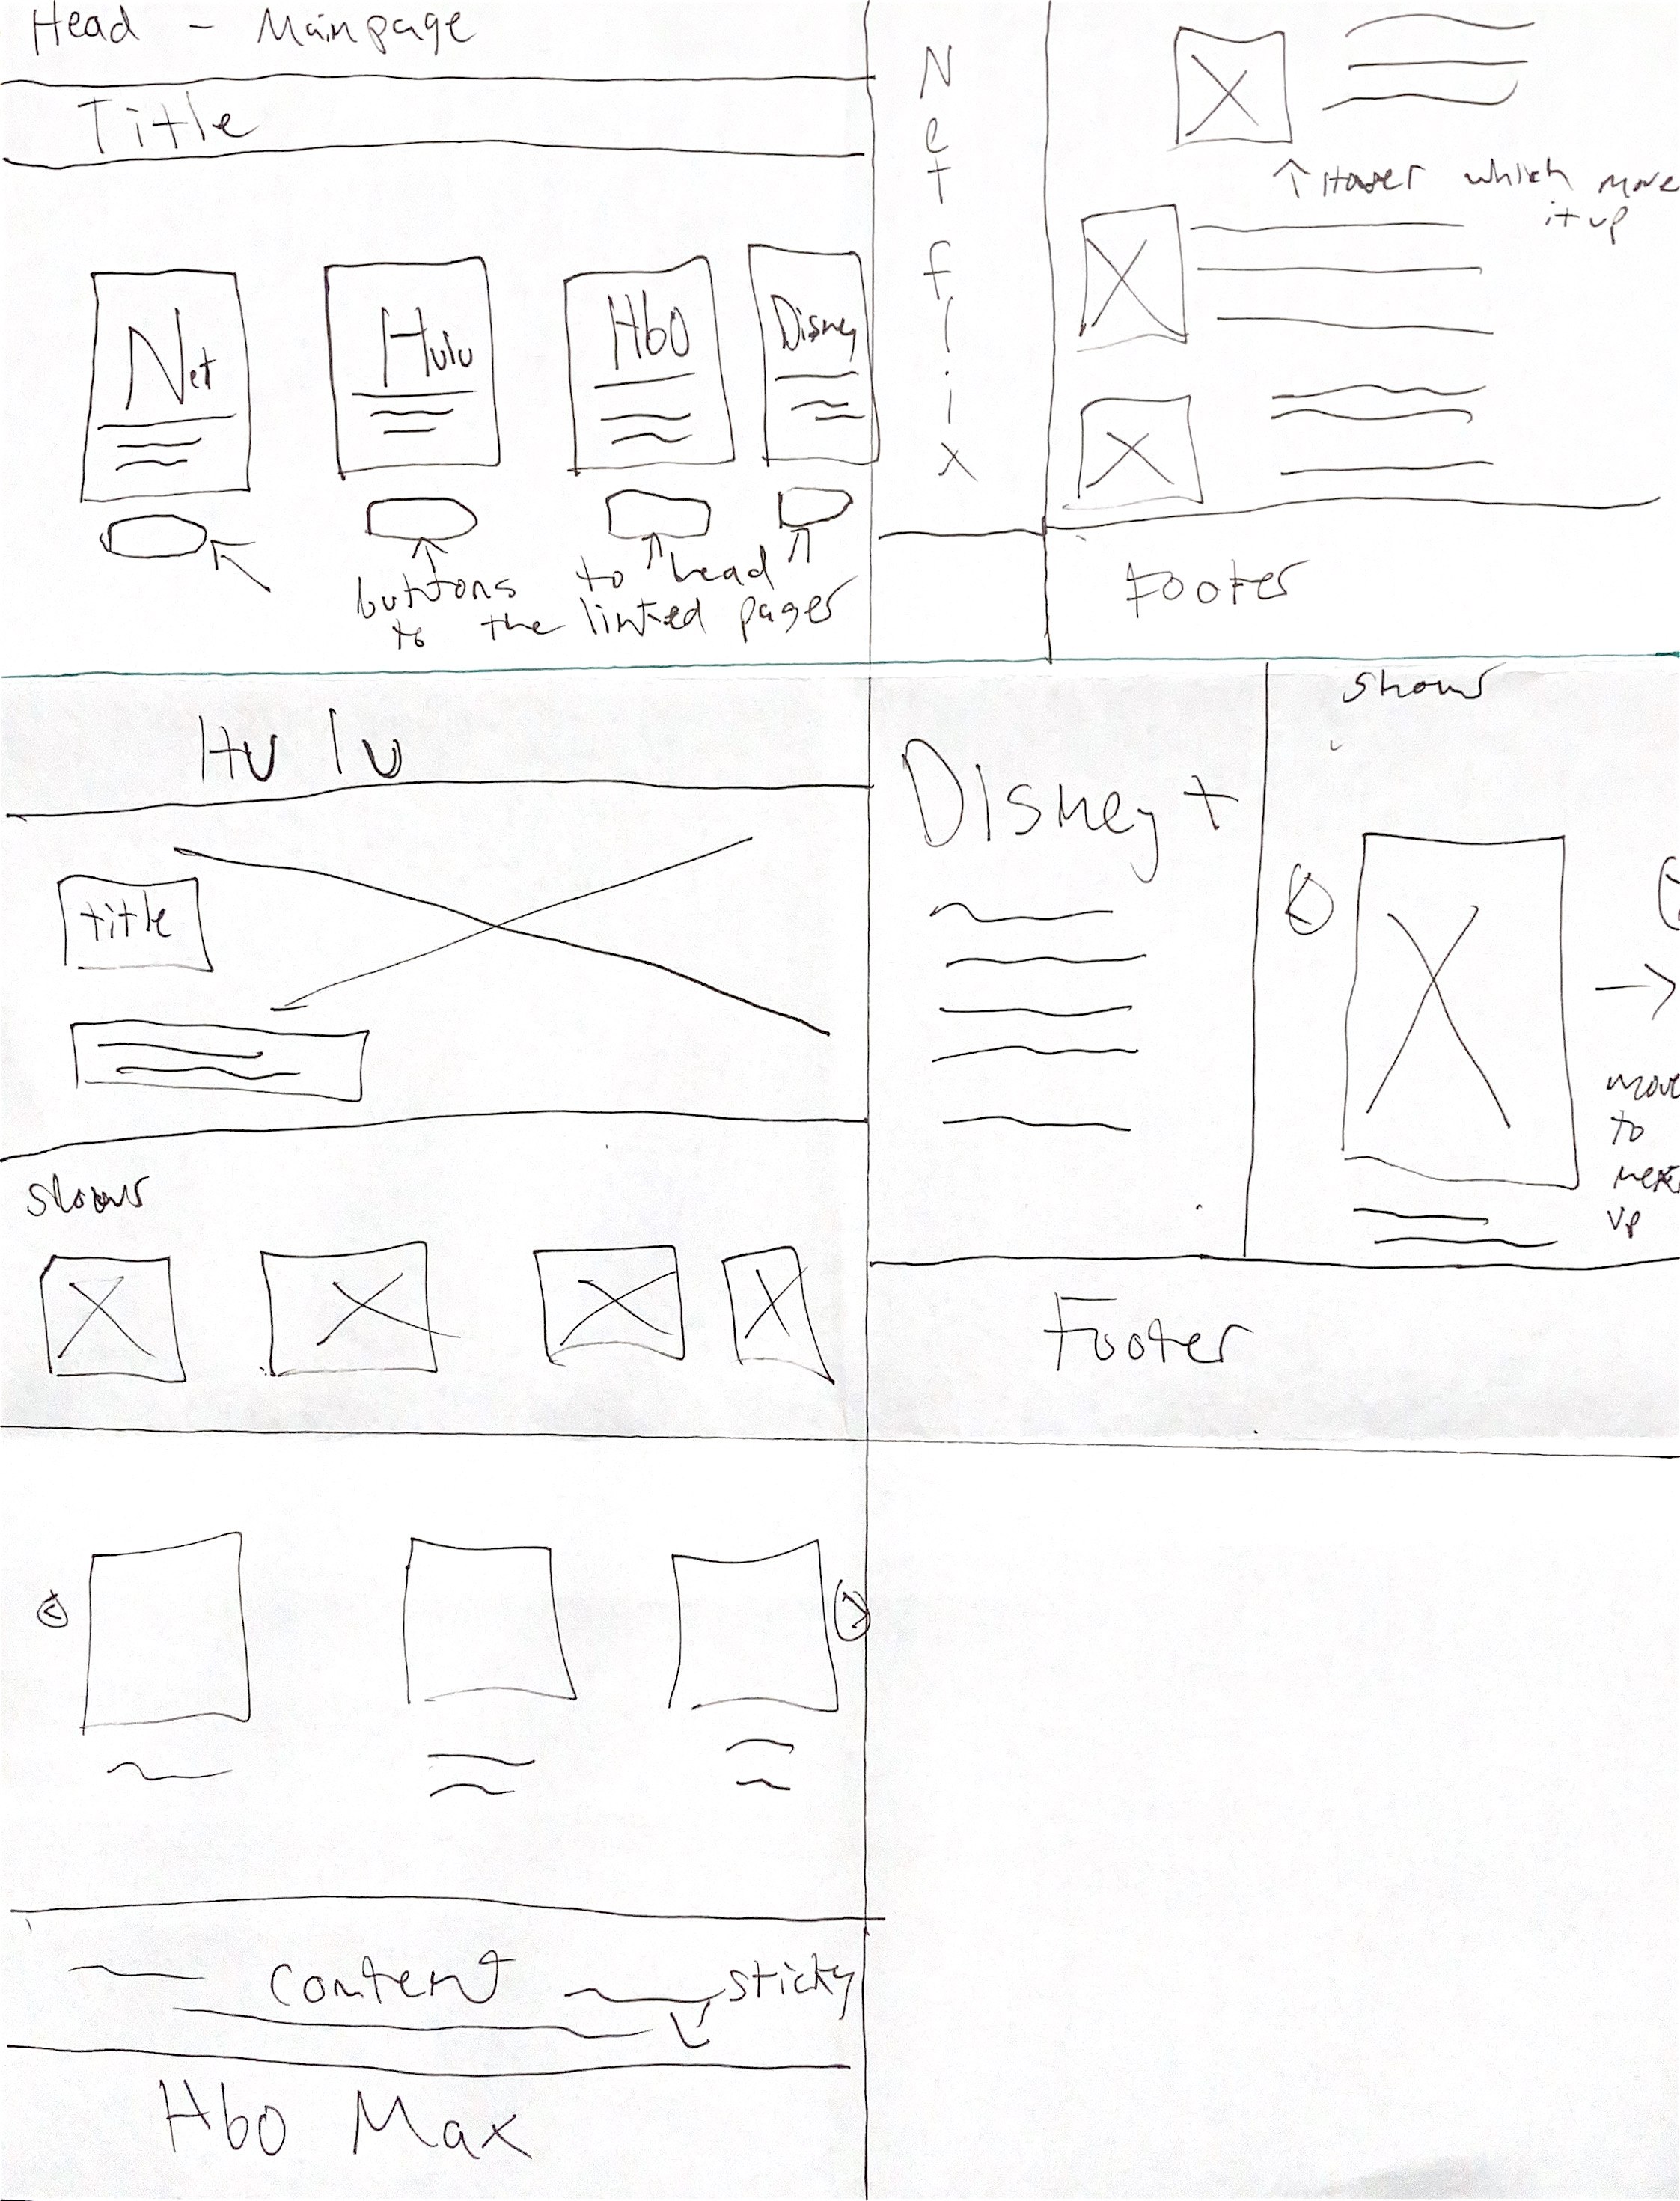 Head - Mainpage
Title
Net
Hulu
Hbo
Disney
buttons to head
to the linked pages
Netflix
↑ Hover which move
it up
Footer
Hulu
title
shows
Disney +
shows
<
→
move
to
next
up
Footer
<
>
content
sticky
Hbo Max